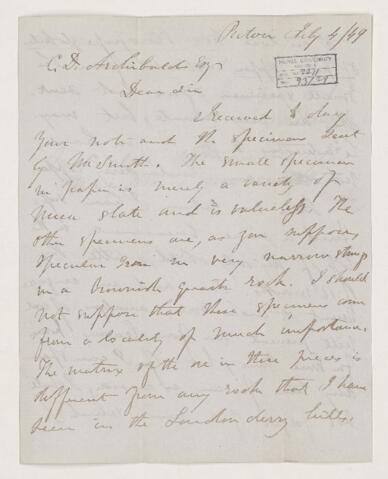 Pictou July 4/49
C. D. Archibald Esq
Dear Sir
Received today
your note and the specimens sent
by Mr Smith. The small specimen
in paper is merely a variety of
mica slate and is valueless. The
other specimens are, as you suppose,
specular iron in very narrow strings
in a brownish quartz rock. I should
not suppose that these specimens come
from a locality of much importance.
The matrix of the ore in these pieces is
different from any rock that I have
seen in the Londonderry hills.